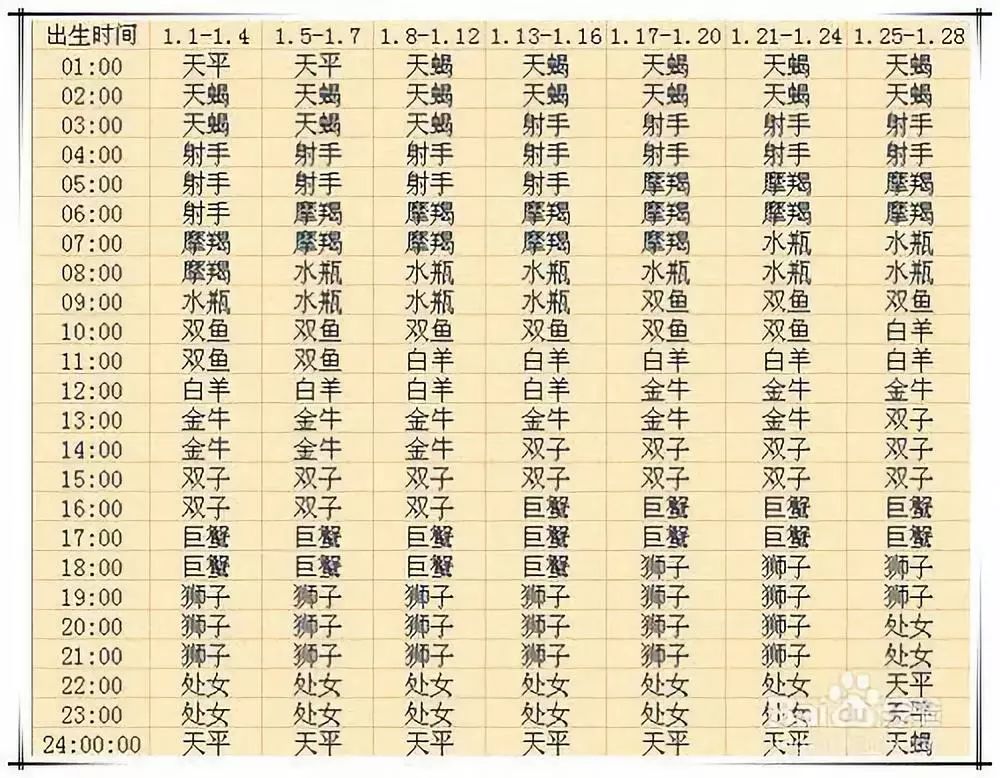 出生时间 1.1-1.4 1.5-1.7 1.8-1.12 1.13-1.16 1.17-1.20 1.21-1.24 1.25-1.28
01:00 天平 天平 天蝎 天蝎 天蝎 天蝎 天蝎
02:00 天蝎 天蝎 天蝎 天蝎 天蝎 天蝎 天蝎
03:00 天蝎 天蝎 天蝎 射手 射手 射手 射手
04:00 射手 射手 射手 射手 射手 射手 射手
05:00 射手 射手 射手 射手 摩羯 摩羯 摩羯
06:00 射手 摩羯 摩羯 摩羯 摩羯 摩羯 摩羯
07:00 摩羯 摩羯 摩羯 摩羯 摩羯 水瓶 水瓶
08:00 摩羯 水瓶 水瓶 水瓶 水瓶 水瓶 水瓶
09:00 水瓶 水瓶 水瓶 水瓶 双鱼 双鱼 双鱼
10:00 双鱼 双鱼 双鱼 双鱼 双鱼 双鱼 白羊
11:00 双鱼 双鱼 白羊 白羊 白羊 白羊 白羊
12:00 白羊 白羊 白羊 白羊 金牛 金牛 金牛
13:00 金牛 金牛 金牛 金牛 金牛 金牛 双子
14:00 金牛 金牛 金牛 双子 双子 双子 双子
15:00 双子 双子 双子 双子 双子 双子 双子
16:00 双子 双子 双子 巨蟹 巨蟹 巨蟹 巨蟹
17:00 巨蟹 巨蟹 巨蟹 巨蟹 巨蟹 巨蟹 巨蟹
18:00 巨蟹 巨蟹 巨蟹 巨蟹 狮子 狮子 狮子
19:00 狮子 狮子 狮子 狮子 狮子 狮子 狮子
20:00 狮子 狮子 狮子 狮子 狮子 狮子 处女
21:00 狮子 狮子 狮子 狮子 狮子 狮子 处女
22:00 处女 处女 处女 处女 处女 处女 天平
23:00 处女 处女 处女 处女 处女 处女 天平
24:00:00 天平 天平 天平 天平 天平 天平 天蝎